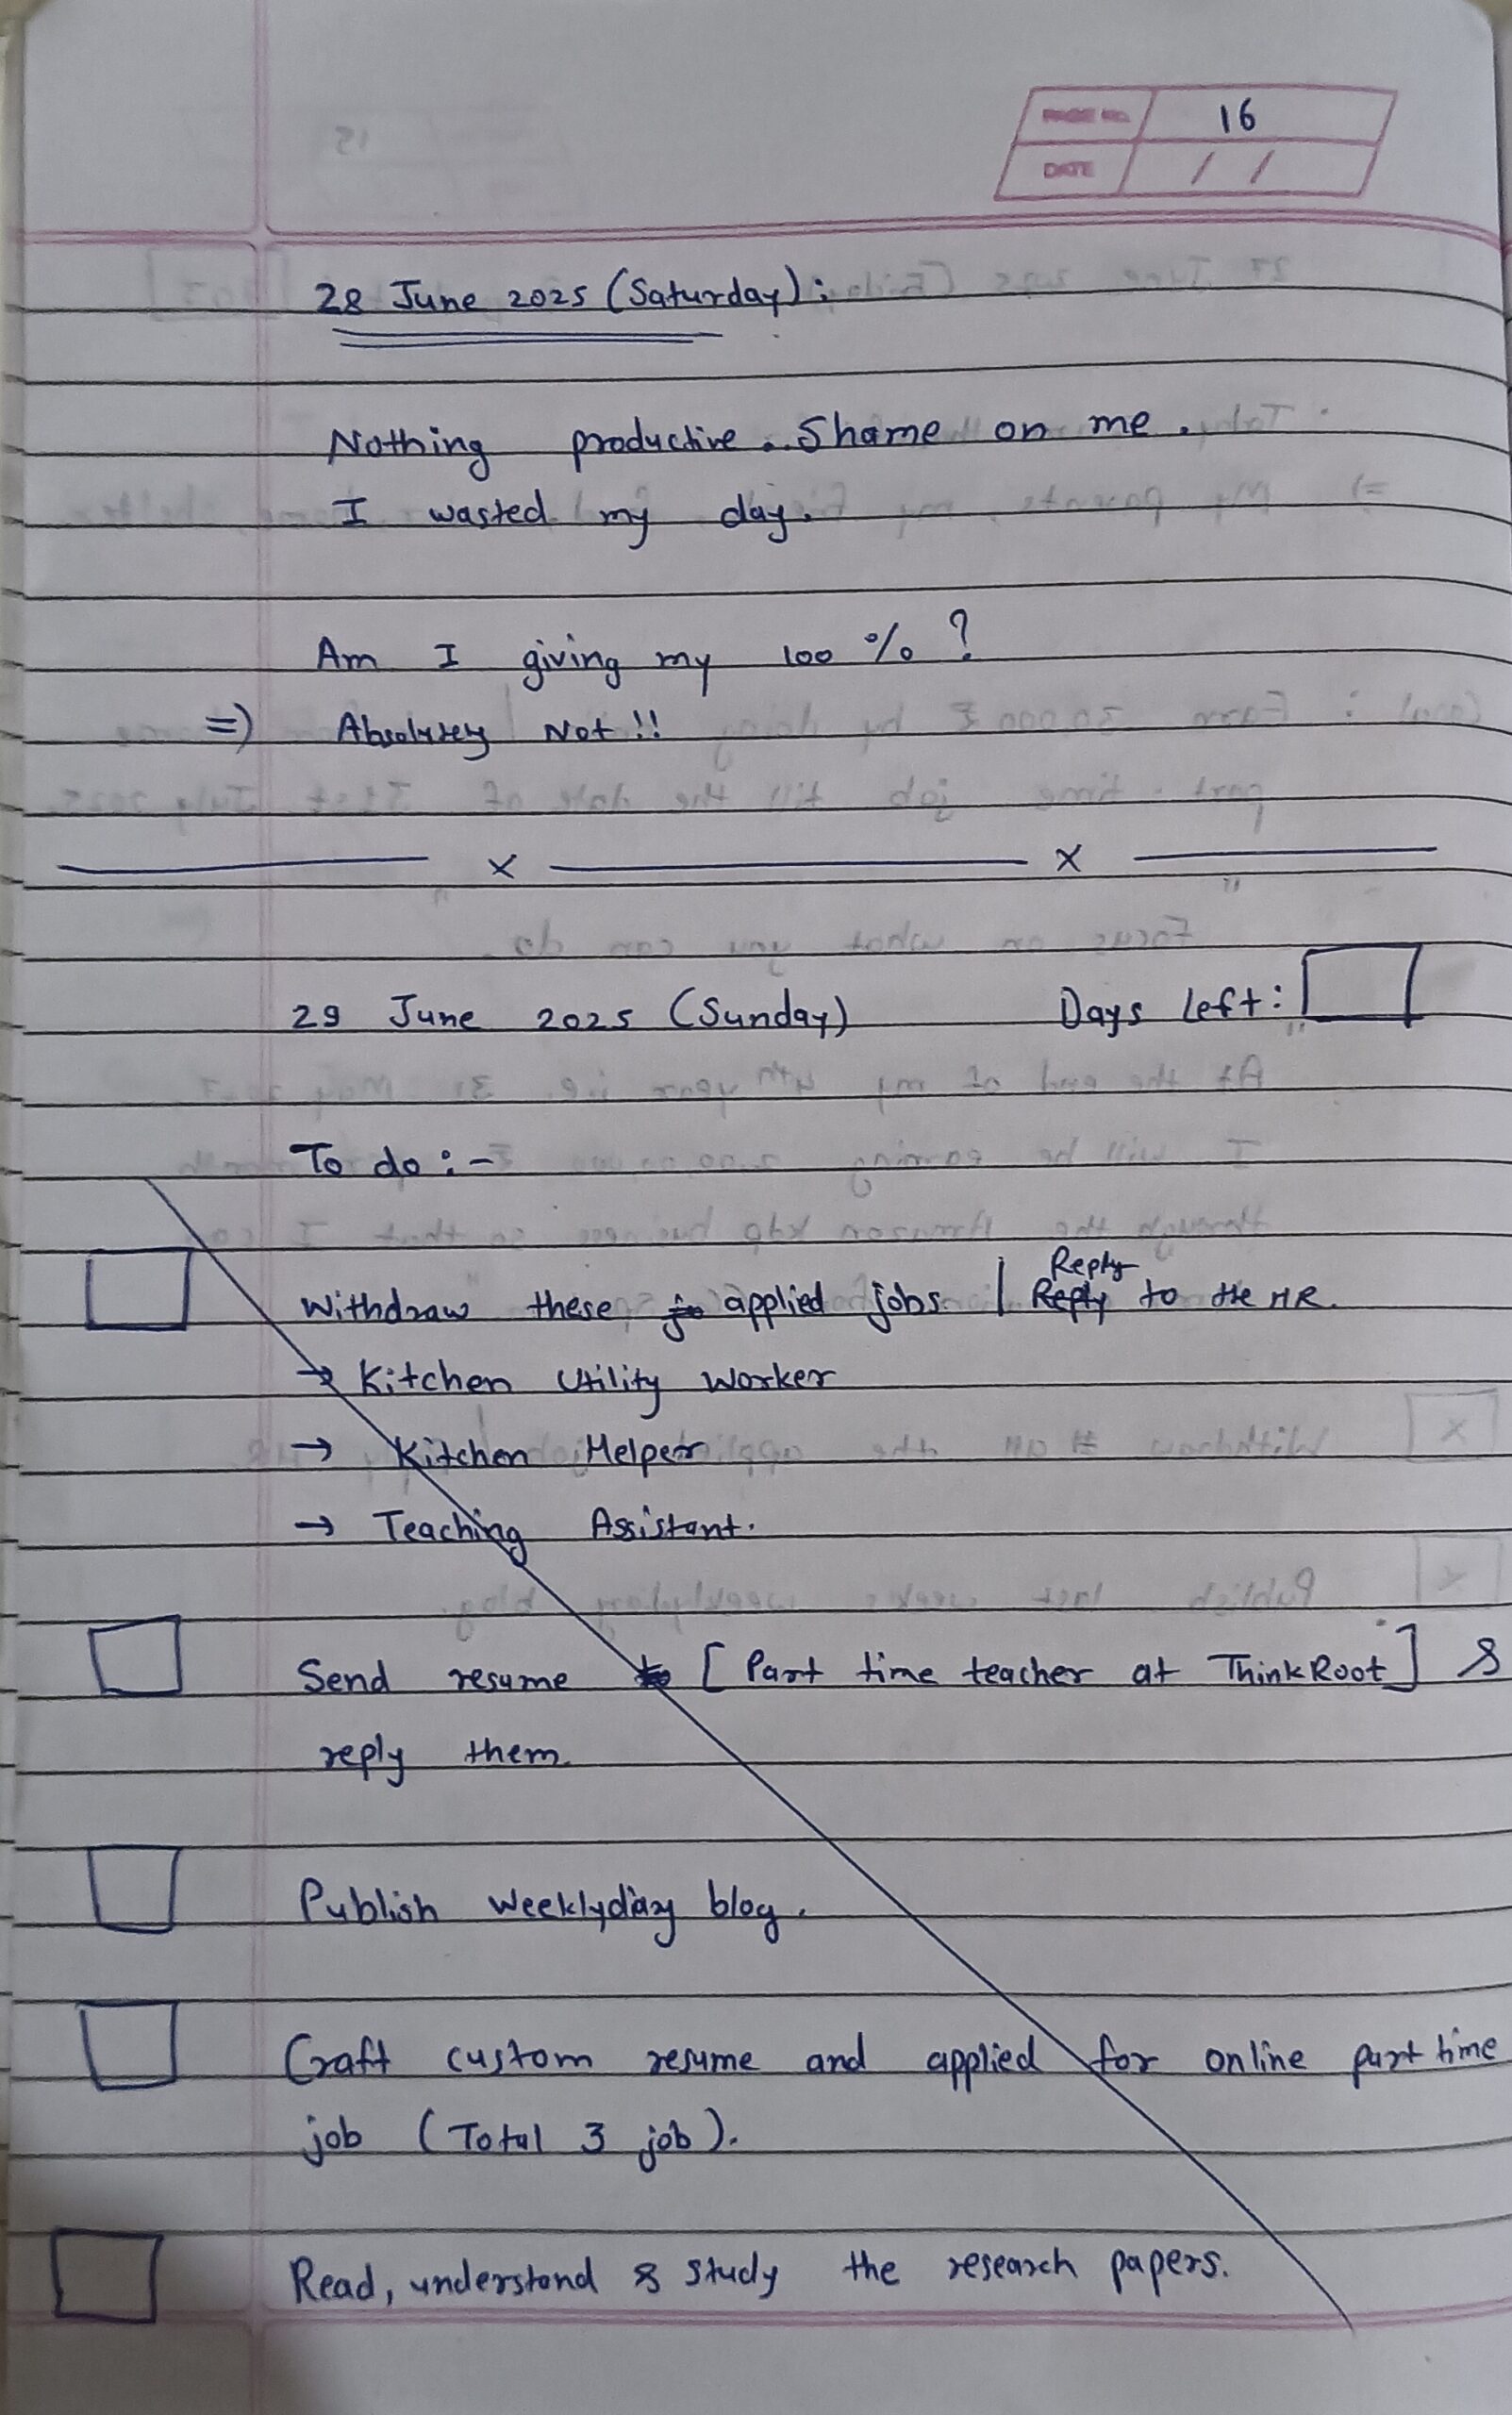 PAGE NO. 16
DATE / /
28 June 2025 (Saturday):
Nothing productive. Shame on me.
I wasted my day.
Am I giving my 100 % ?
=) Absolutey Not !!
x x
29 June 2025 (Sunday) Days left:
To do :-
Withdraw these jo applied jobs | Reply Reply to the HR.
→ Kitchen Utility Worker
→ Kitchen Helper
→ Teaching Assistant.
Send resume to [ Part time teacher at ThinkRoot ] &
reply them.
Publish weeklydiary blog.
Craft custom resume and applied for online part time
job ( Total 3 job ).
Read, understand & study the research papers.